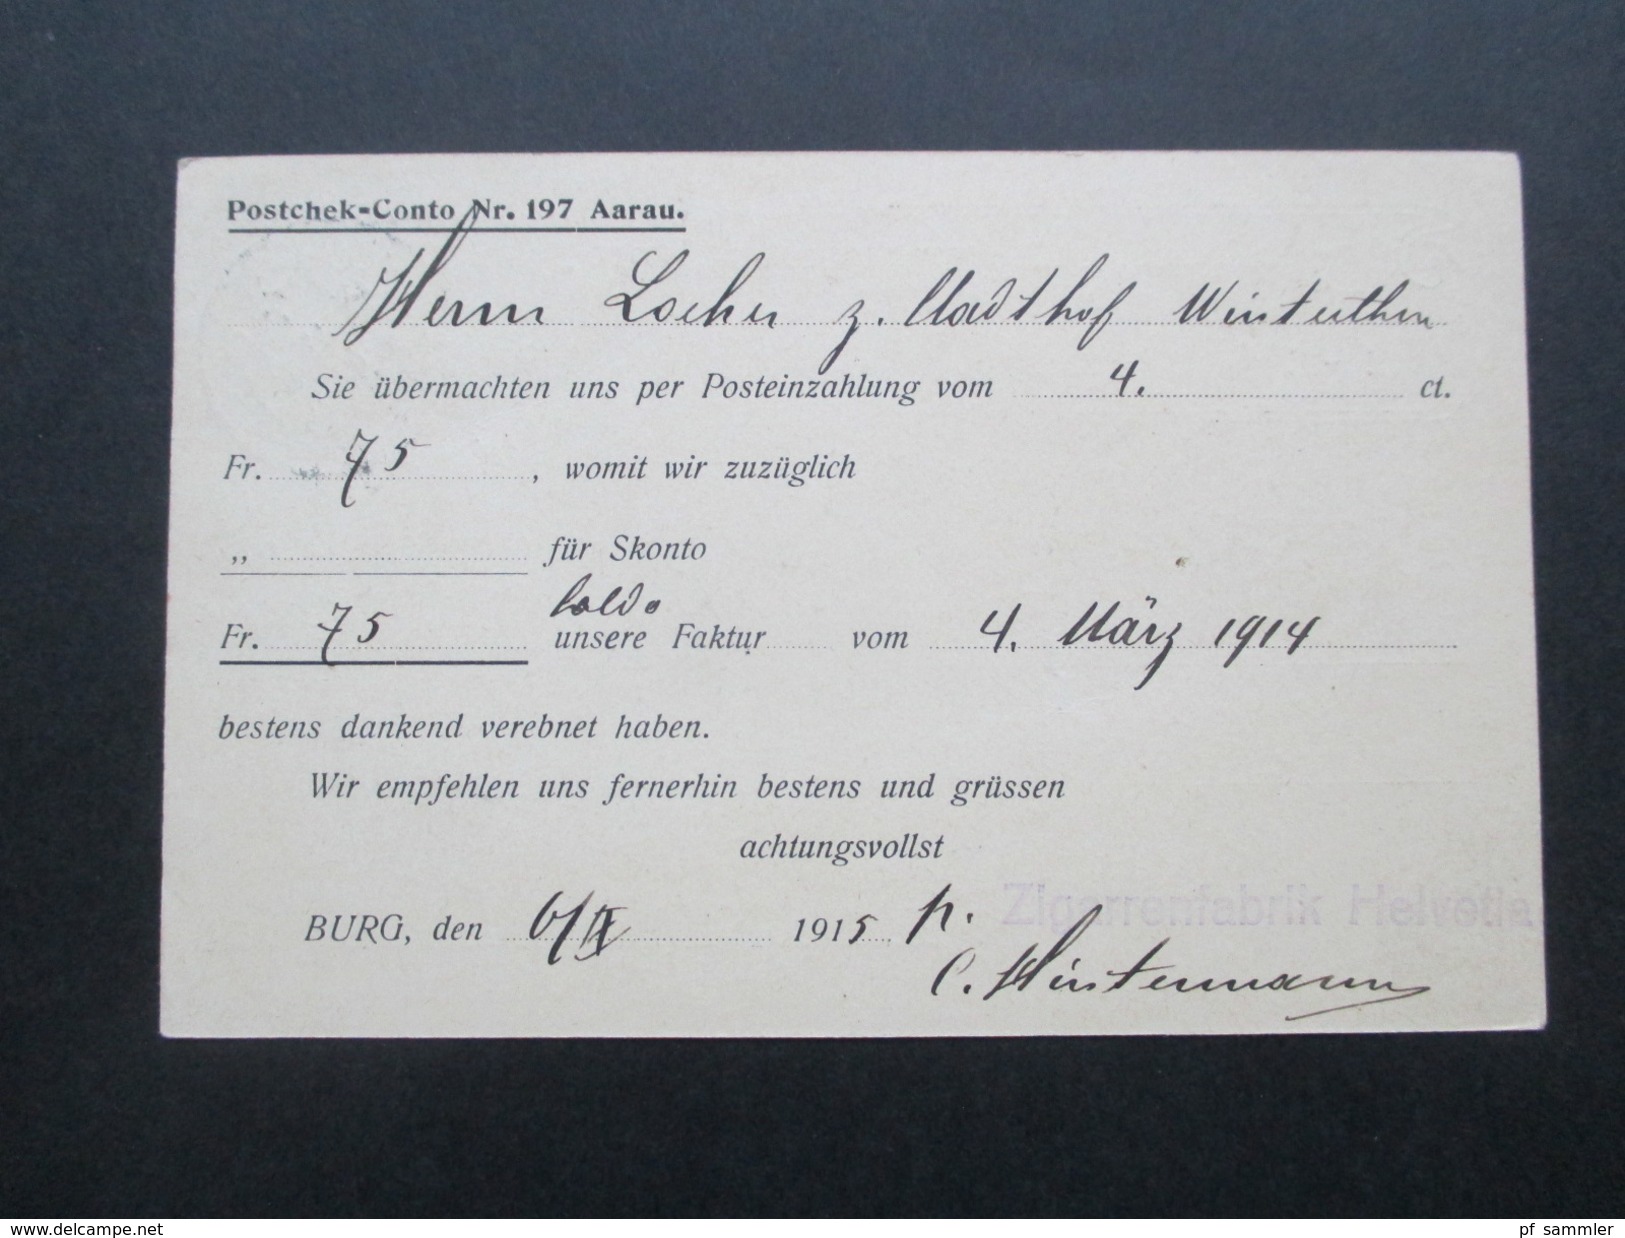 Postchek-Conto Nr. 197 Aarau.
Herrn Locher z. Stadthof Winterthur
Sie übermachten uns per Posteinzahlung vom 4. ct.
Fr. 75, womit wir zuzüglich
„ für Skonto
Saldo
Fr. 75 unsere Faktur vom 4. März 1914
bestens dankend verebnet haben.
Wir empfehlen uns fernerhin bestens und grüssen
achtungsvollst
BURG, den 6/IX 1915 p. Zigarrenfabrik Helvetia
C. Hintermann
www.delcampe.net
pf_sammler